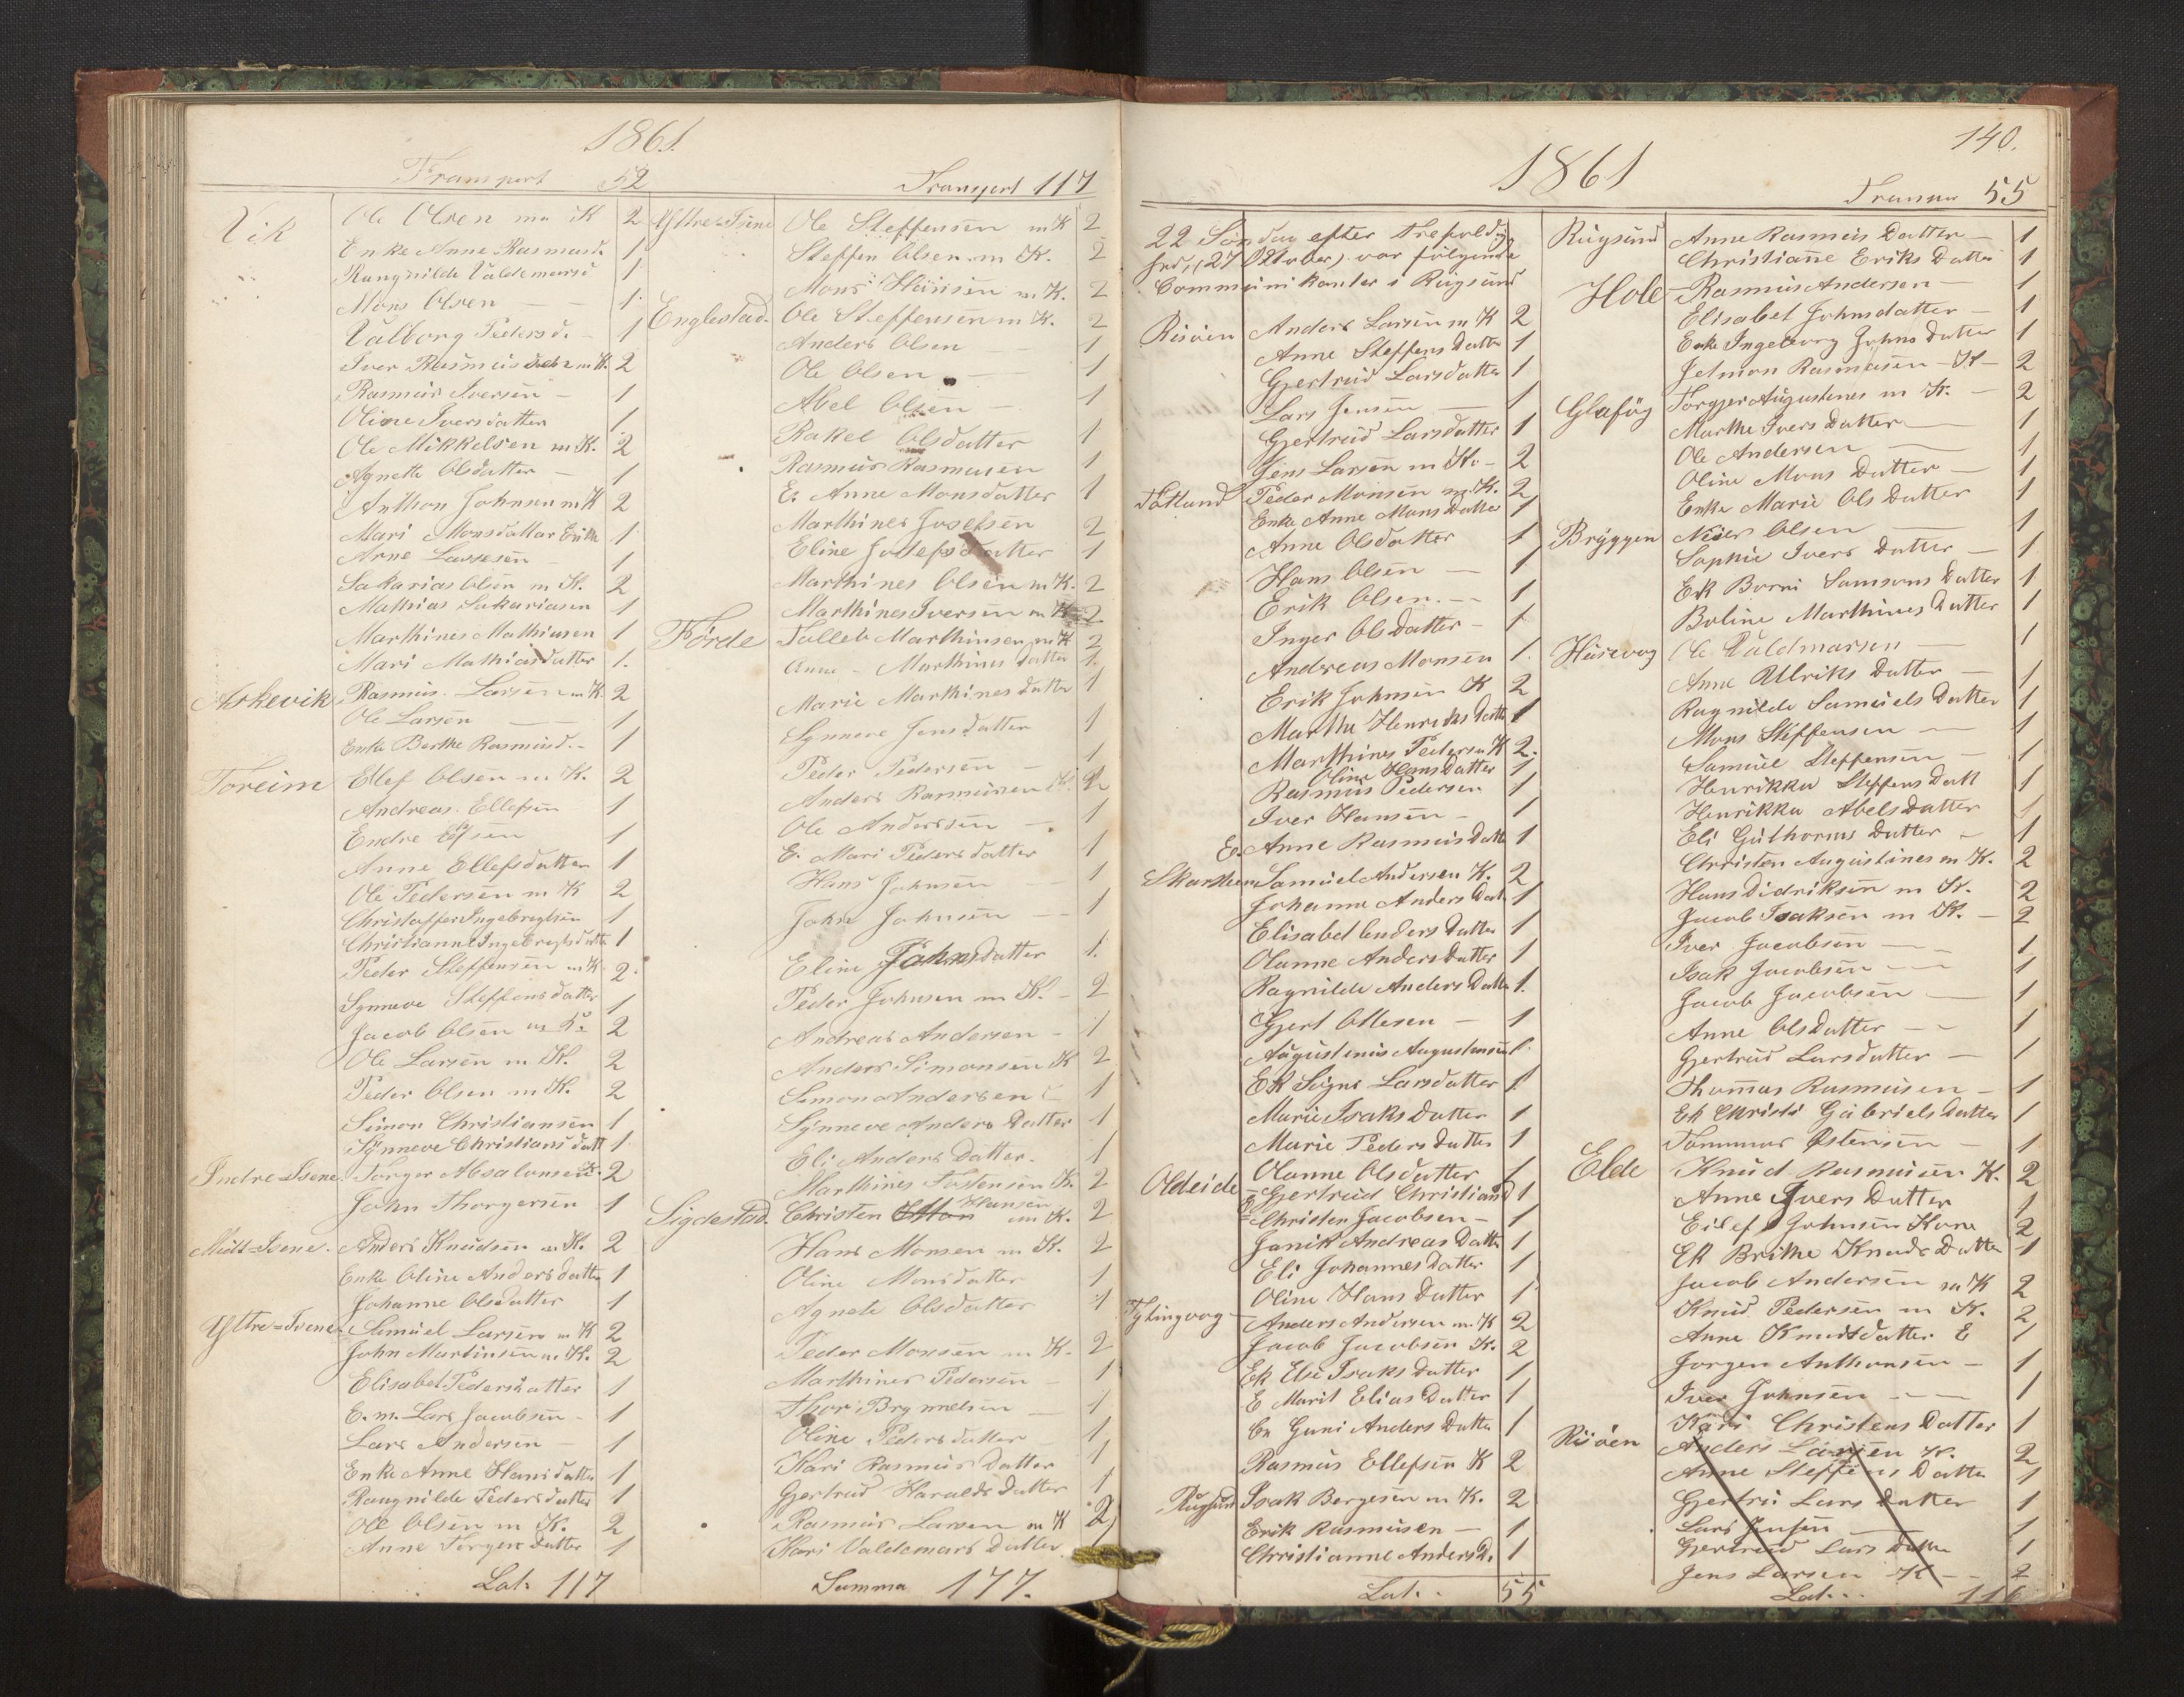 1861.
Transport 52
Vik Ole Olsen m K 2
Enke Anne Rasmusd. 1
Rangnilde Valdemarsd 1
Mons Olsen 1
Valborg Pedersd. 1
Iver Rasmus m K. 2
Rasmus Iversen 1
Oline Iversdatter 1
Ole Mikkelsen m K. 2
Agnette Olsdatter 1
Anthon Johnsen m K 2
Mari Monsdatter Enke 1
Arne Lassesen 1
Sakarias Olsen m K. 2
Mathias Sakariasen 1
Marthines Mathiasen 1
Mari Mathiasdatter 1.
Askevik Rasmus Larsen m K. 2
Ole Larsen 1
Enke Berthe Rasmusd. 1
Toreim Ellef Olsen m K. 2
Andreas Ellefsen 1
Endre 1
Anne Ellefsdatter 1
Ole Pedersen m K 2
Christoffer Ingebregtsen 1
Christianne Ingebregtsdatter 1
Peder Steffensen m K 2.
Synneve Steffensdatter 1
Jacob Olsen m K. 2
Ole Larsen m K. 2
Peder Olsen m K. 2
Simon Christiansen 1
Synneve Christiansdatt 1
Indre=Isene Torger Absalonsen K. 2
John Thorgersen 1
Midt=Isene. Anders Knudsen m K. 2
Enke Oline Andersdatter 1
Johanne Olsdatter 1
Yttre=Isene Samuel Larsen m K 2
John Martinsen m K. 2
Elisabet Pedersdatter 1
E. m. Lars Jacobsen 1
Lars Andersen 1
Enke Anne Hansdatter 1
Rangnilde Pedersdatter 1
Ole Olsen m K. 2
Anne Torgersdatter 1
Lat. 117
Transport 117
Yttre=Isene Ole Steffensen m K 2
Steffen Olsen m K. 2
Mons Hansen m K. 2
Englestad. Ole Steffensen m K. 2
Anders Olsen 1
Ole Olsen 1
Abel Olsen 1
Rakel Olsdatter 1
Rasmus Rasmusen 1
E. Anne Monsdatter 1
Marthines Josefsen 2
Eline Josefsdatter 1
Marthines Olsen m K. 2
Marthines Iversen m K 2
Förde Tolleb Marthinsen m K 2
Anne Marthines datter 1.
Marie Marthinesdatter 1
Synneve Jensdatter 1
Peder Pedersen 1
Anders Rasmusen 2
Ole Anderssen 1
E. Mari Pedersdatter 1
Hans Johnsen 1
John Johnsen 1
Eline Johnsdatter 1.
Peder Johnsen m K. 2
Andreas Andersen 1
Anders Simonsen K 2
Simon Andersen 1
Synneve Anders Datter 1
Eli Anders Datter. 1
Marthines Tostensen K. 2
Sigdestad. Christen Hansen m K. 2
Hans Monsen m K. 2
Oline Monsdatter 1
Agnete Olsdatter 1
Peder Monsen m K. 2
Marthines Pedersen 1
Thor Brynnelsen 1
Oline Pedersdatter 1
Kari Rasmus Datter 1
Gjertrud Haralds Datter 1
Rasmus Larsen m K 2
Kari Valdemars Datter 1
Summa 177.
140.
1861
22 Söndag efter Trefoldig
hed, (27 Oktober) var fölgende
Communikanter i Rugsund
Risöen Anders Larsen m K 2
Anne Steffens Datter 1
Gjertrud Larsdatter 1
Lars Jensen 1
Gjertrud Larsdatter 1
Jens Larsen m K. 2
Totland Peder Monsen m K. 2
Enke Anne Mons Datter 1
Anne Olsdatter 1
Hans Olsen 1
Erik Olsen. 1
Inger Olsdatter 1
Andreas Monsen 1.
Erik Johnsen K 2
Marthe Henriks Datter 1
Marthines Pedersen K 2.
Oline Hans Datter 1
Rasmus Pedersen 1
Iver Hansen 1
E. Anne Rasmus Datt 1
Skarsteen Samuel Andersen K. 2
Johanne Anders Datt 1
Elisabet Anders Datter 1
Olanne Anders Datter 1
Ragnilde Anders Datter 1.
Gjert Ottesen 1
Augustinus Augustinusen 1.
Ek Signe Larsdatter 1
Marie Isaks Datter 1
Marie Peders Datter 1
Oldeide Olanne Olsdatter 1
Gjertrud Christiansd 1
Christen Jacobsen 1
Janik Andreas Datter 1
Eli Johannes Datter 1
Oline Hans Datter 1
Tytingvog Anders Andersen m K 2
Jacob Jacobsen K. 2
Ek Else Isaks Datter 1
E Marit Elias Datter 1
En Guni Anders Datter 1
Rasmus Ellefsen K 2
Rugsund Isak Børgesen m K. 2
Erik Rasmusen 1
Christianne Anders D. 1
Lat. 55
55
Rugsund Anne Rasmus Datter 1
Christianne Eriks Datter 1
Hole Rasmus Andersen 1
Elisabet Johnsdatter 1
Enke Ingeborg Johns Datter 1
Jetmon Rasmusen K 2
Glafög Torgjer Augustenes m K. 2
Marthe Ivers Datter 1
Ole Andersen 1
Oline Mons Datter 1
Enke Marie Ols Datter 1
Bryggen Olsen 1
Sophie Ivers Datter 1
Ek Borni Samsons Datter 1
Boline Marthines Datter 1
Husevog Ole Valdmarsen 1
Anne Ullriks Datter 1
Ragnilde Samuels Datter 1
Mons Steffensen 1
Samuel Steffensen 1
Henrikka Steffens Datt 1
Henrikka Abels Datter 1
Eli Guthorms Datter 1
Christen Augustines m K. 2
Hans Didriksen m K. 2
Jacob Isaksen m K. 2
Iver Jacobsen 1
Isak Jacobsen 1
Jacob Jacobsen 1
Anne Ols Datter 1
Gjertrud Larsdatter 1
Thomas Rasmusen 1
Ek Christi Gabriels Datter 1
Tommas Østensen 1
Elde Knud Rasmusen K. 2
Anne Ivers Datter 1
Eilef Johnsen Kone 2
Ek Brithe Knuds Datter 1
Jacob Andersen m K 2
Knud Pedersen m K. 2
Anne Knudsdatter E 1
Jorgen Anthonsen 1
Iver Johnsen 1
Kari Christens Datter 1
Risöen Anders Larsen K. 2
Anne Steffens Datter 1
Gjertru Lars Datter 1
Lars Jensen 1
Gjertrud Lars Datter 1
Jens Larsen K 2
Lat. 116